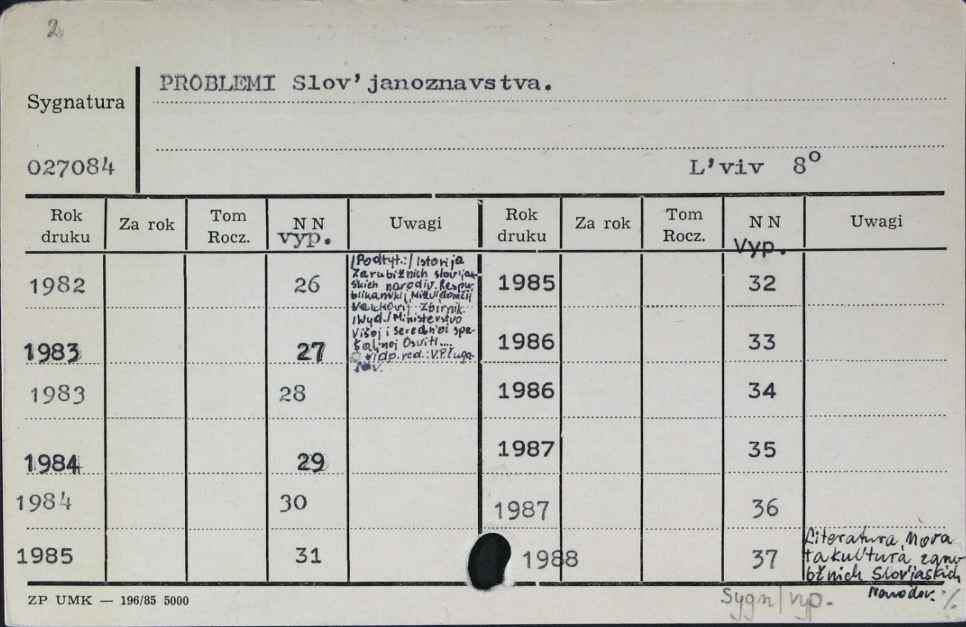 2.
PROBLEMI Slov'janoznavstva.
Sygnatura
027084
L'viv 8°
Rok druku Za rok Tom Rocz. N N vyp. Uwagi Rok druku Za rok Tom Rocz. N N Vyp. Uwagi
1982 26
/Podtyt.:/ Istorija
Zarubižnich slovjan-
skich narodiv. Respu-
blikanśkij Mižvidomčij
Naukovij Zbirnik.
/Wyd./ Ministerstvo
Višoj i serednoi spe-
Osviti....
Vidp. red.: V.P.Čuga-
jov.
1983 27
1983 28
1984 29
1984 30
1985 31
1985 32
1986 33
1986 34
1987 35
1987 36
1988 37
Literatura, Mova
ta kultura zaru-
bižnich Slovjaskich
Narodov. ·/.
Sygn/vyp.
ZP UMK — 196/85 5000